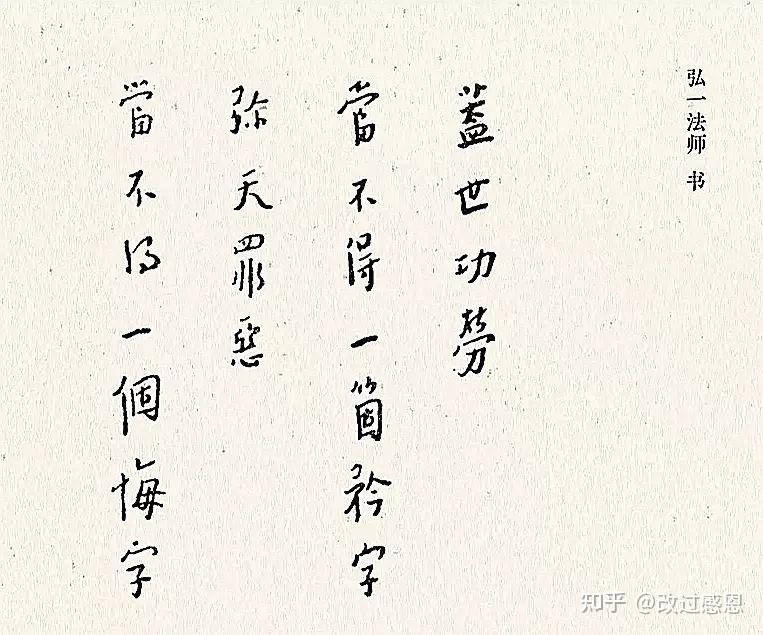 弘一法师 书
蓋世功勞
當不得一箇矜字
弥天罪惡
當不得一個悔字
知乎 @改过感恩